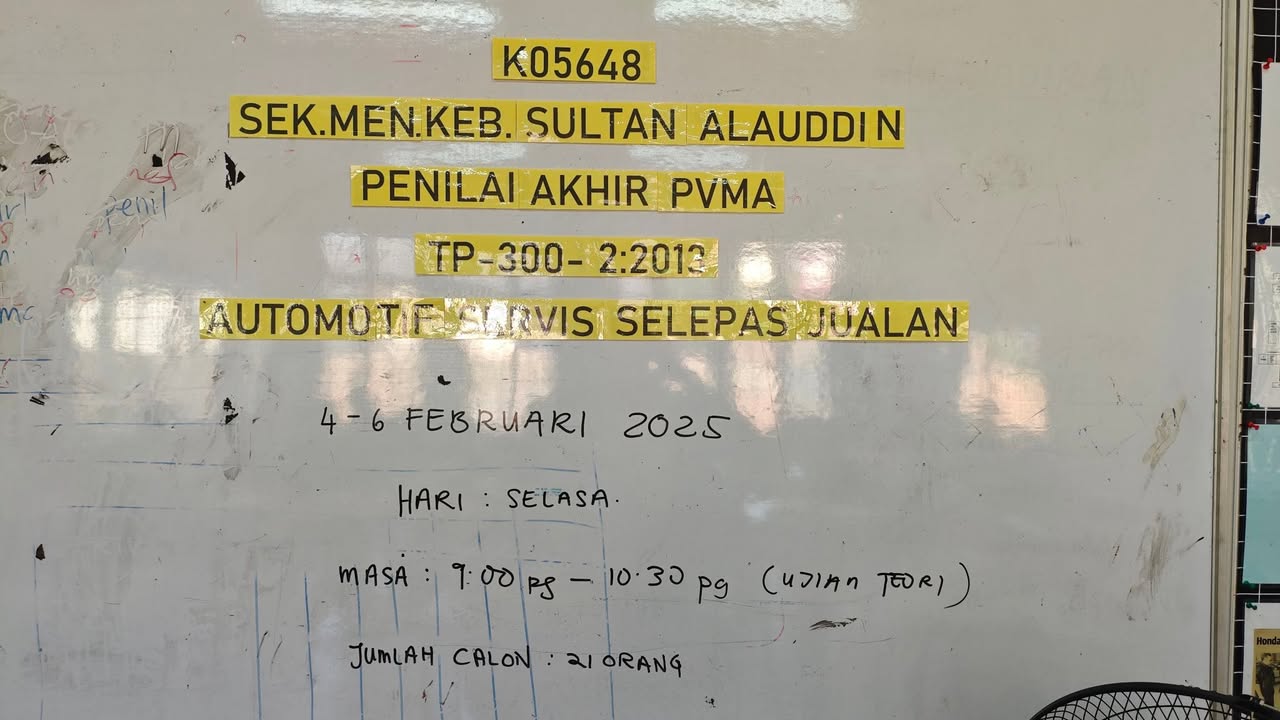 K05648
SEK.MEN.KEB. SULTAN ALAUDDIN
PENILAI AKHIR PVMA
TP-300- 2:2013
AUTOMOTIF SERVIS SELEPAS JUALAN
4-6 FEBRUARI 2025
HARI : SELASA.
MASA : 9:00 pg – 10.30 pg (UJIAN TEORI)
JUMLAH CALON : 21 ORANG
penil
mc
Honda